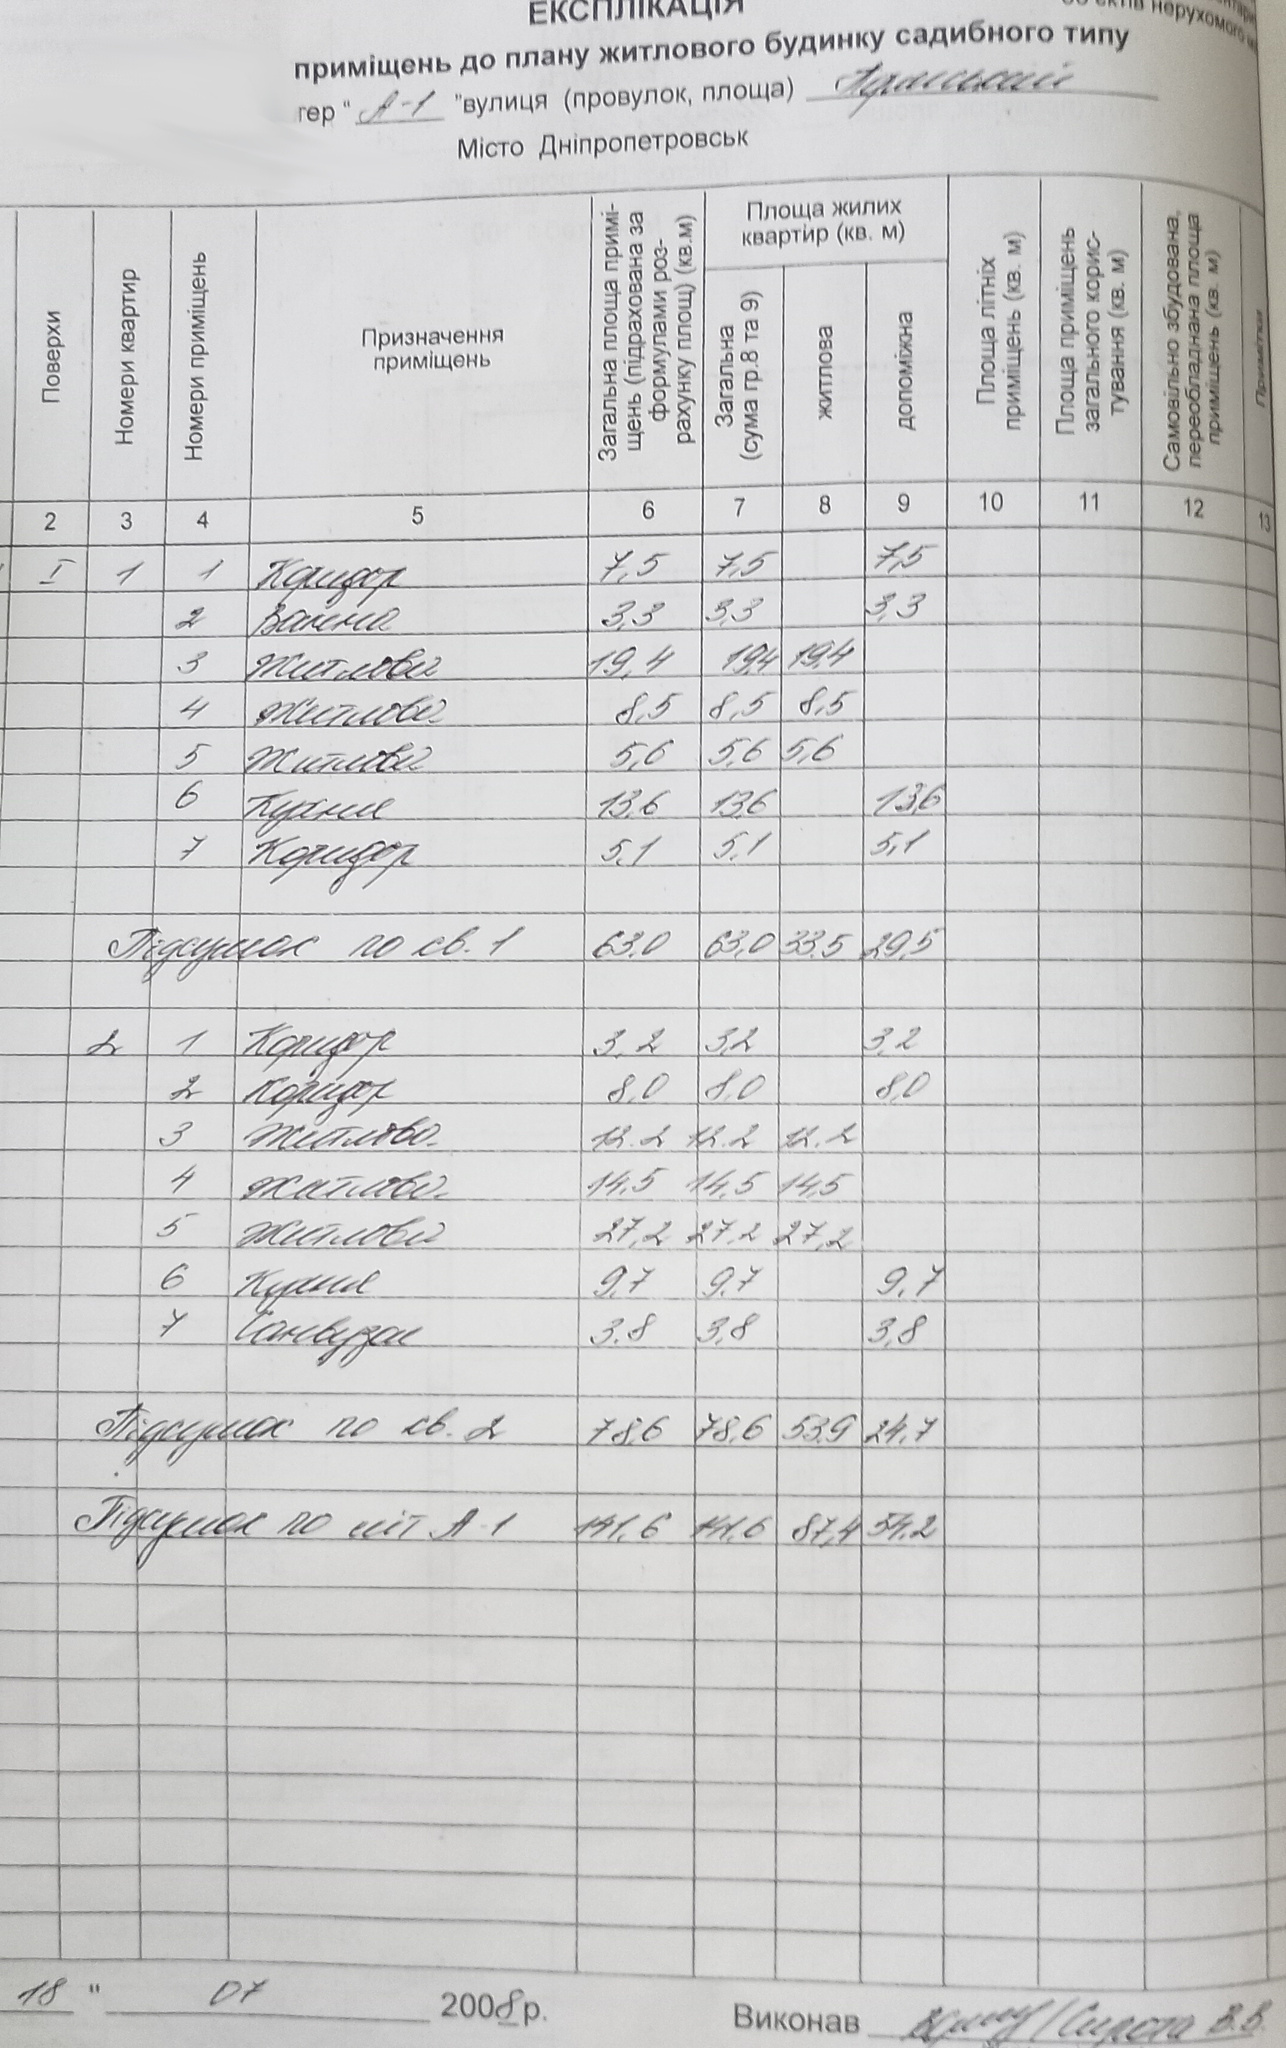 ЕКСПЛІКАЦІЯ
нерухомого
приміщень до плану житлового будинку садибного типу
тер " А-1 " вулиця (провулок, площа)
Місто Дніпропетровськ
Поверхи
Номери квартир
Номери приміщень
Призначення приміщень
Загальна площа приміщень (підрахована за формулами розрахунку площ) (кв.м)
Площа жилих квартир (кв. м)
Загальна (сума гр.8 та 9)
житлова
допоміжна
Площа літніх приміщень (кв. м)
Площа приміщень загального користування (кв. м)
Самовільно збудована, переобладнана площа приміщень (кв. м)
Примітки
2 3 4 5 6 7 8 9 10 11 12 13
I 1 1 Коридор 7,5 7,5 7,5
2 Ванна 3,3 3,3 3,3
3 Житлова 19,4 19,4 19,4
4 Житлова 8,5 8,5 8,5
5 Житлова 5,6 5,6 5,6
6 Кухня 13,6 13,6 13,6
7 Коридор 5,1 5,1 5,1
Підсумок по кв. 1 63.0 63,0 33.5 29,5
2 1 Коридор 3,2 3,2 3,2
2 Коридор 8,0 8,0 8,0
3 Житлова 12.2 12.2 12.2
4 Житлова 14,5 14,5 14,5
5 Житлова 27,2 27,2 27,2
6 Кухня 9,7 9,7 9,7
7 Санвузол 3.8 3,8 3,8
Підсумок по кв. 2 78,6 78,6 53,9 24,7
Підсумок по літ А-1 141,6 141,6 87,4 54.2
18 " 07 2008 р. Виконав / Сирота В.В.